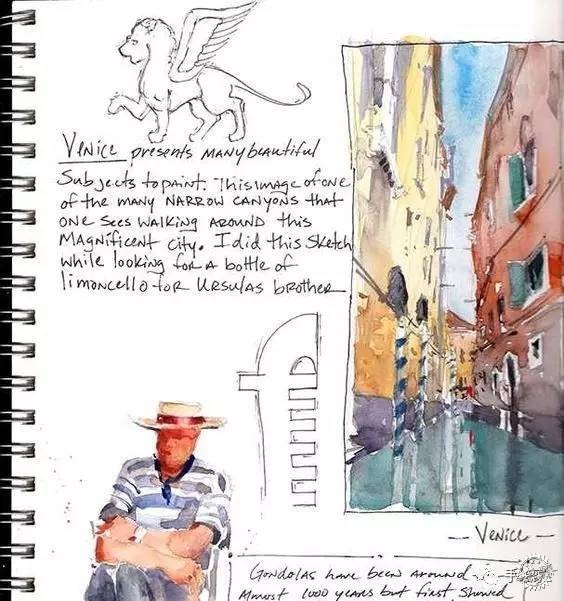 Venice presents many beautiful
subjects to paint. This image of one
of the many narrow canyons that
one sees walking around this
magnificent city. I did this sketch
while looking for a bottle of
limoncello for Ursulas brother
— Venice —
Gondolas have been around
Almost 1000 years but first showed